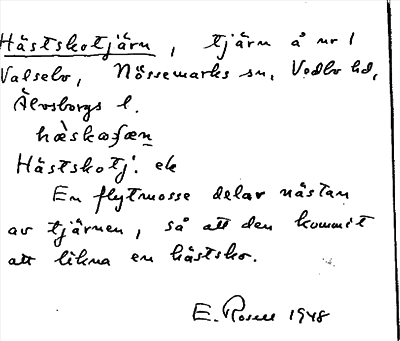 Hästskotjärn, tjärn å nr 1
Valsebo, Nössemarks sn, Vedbo hd,
Älvsborgs l.
Hästskotj. ek
En flytmosse delar nästan
av tjärnen, så att den kommit
att likna en hästsko.
E. Rosell 1948